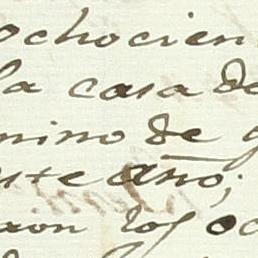 ochocien
la casa de
mino de
ste año;
ron los oc